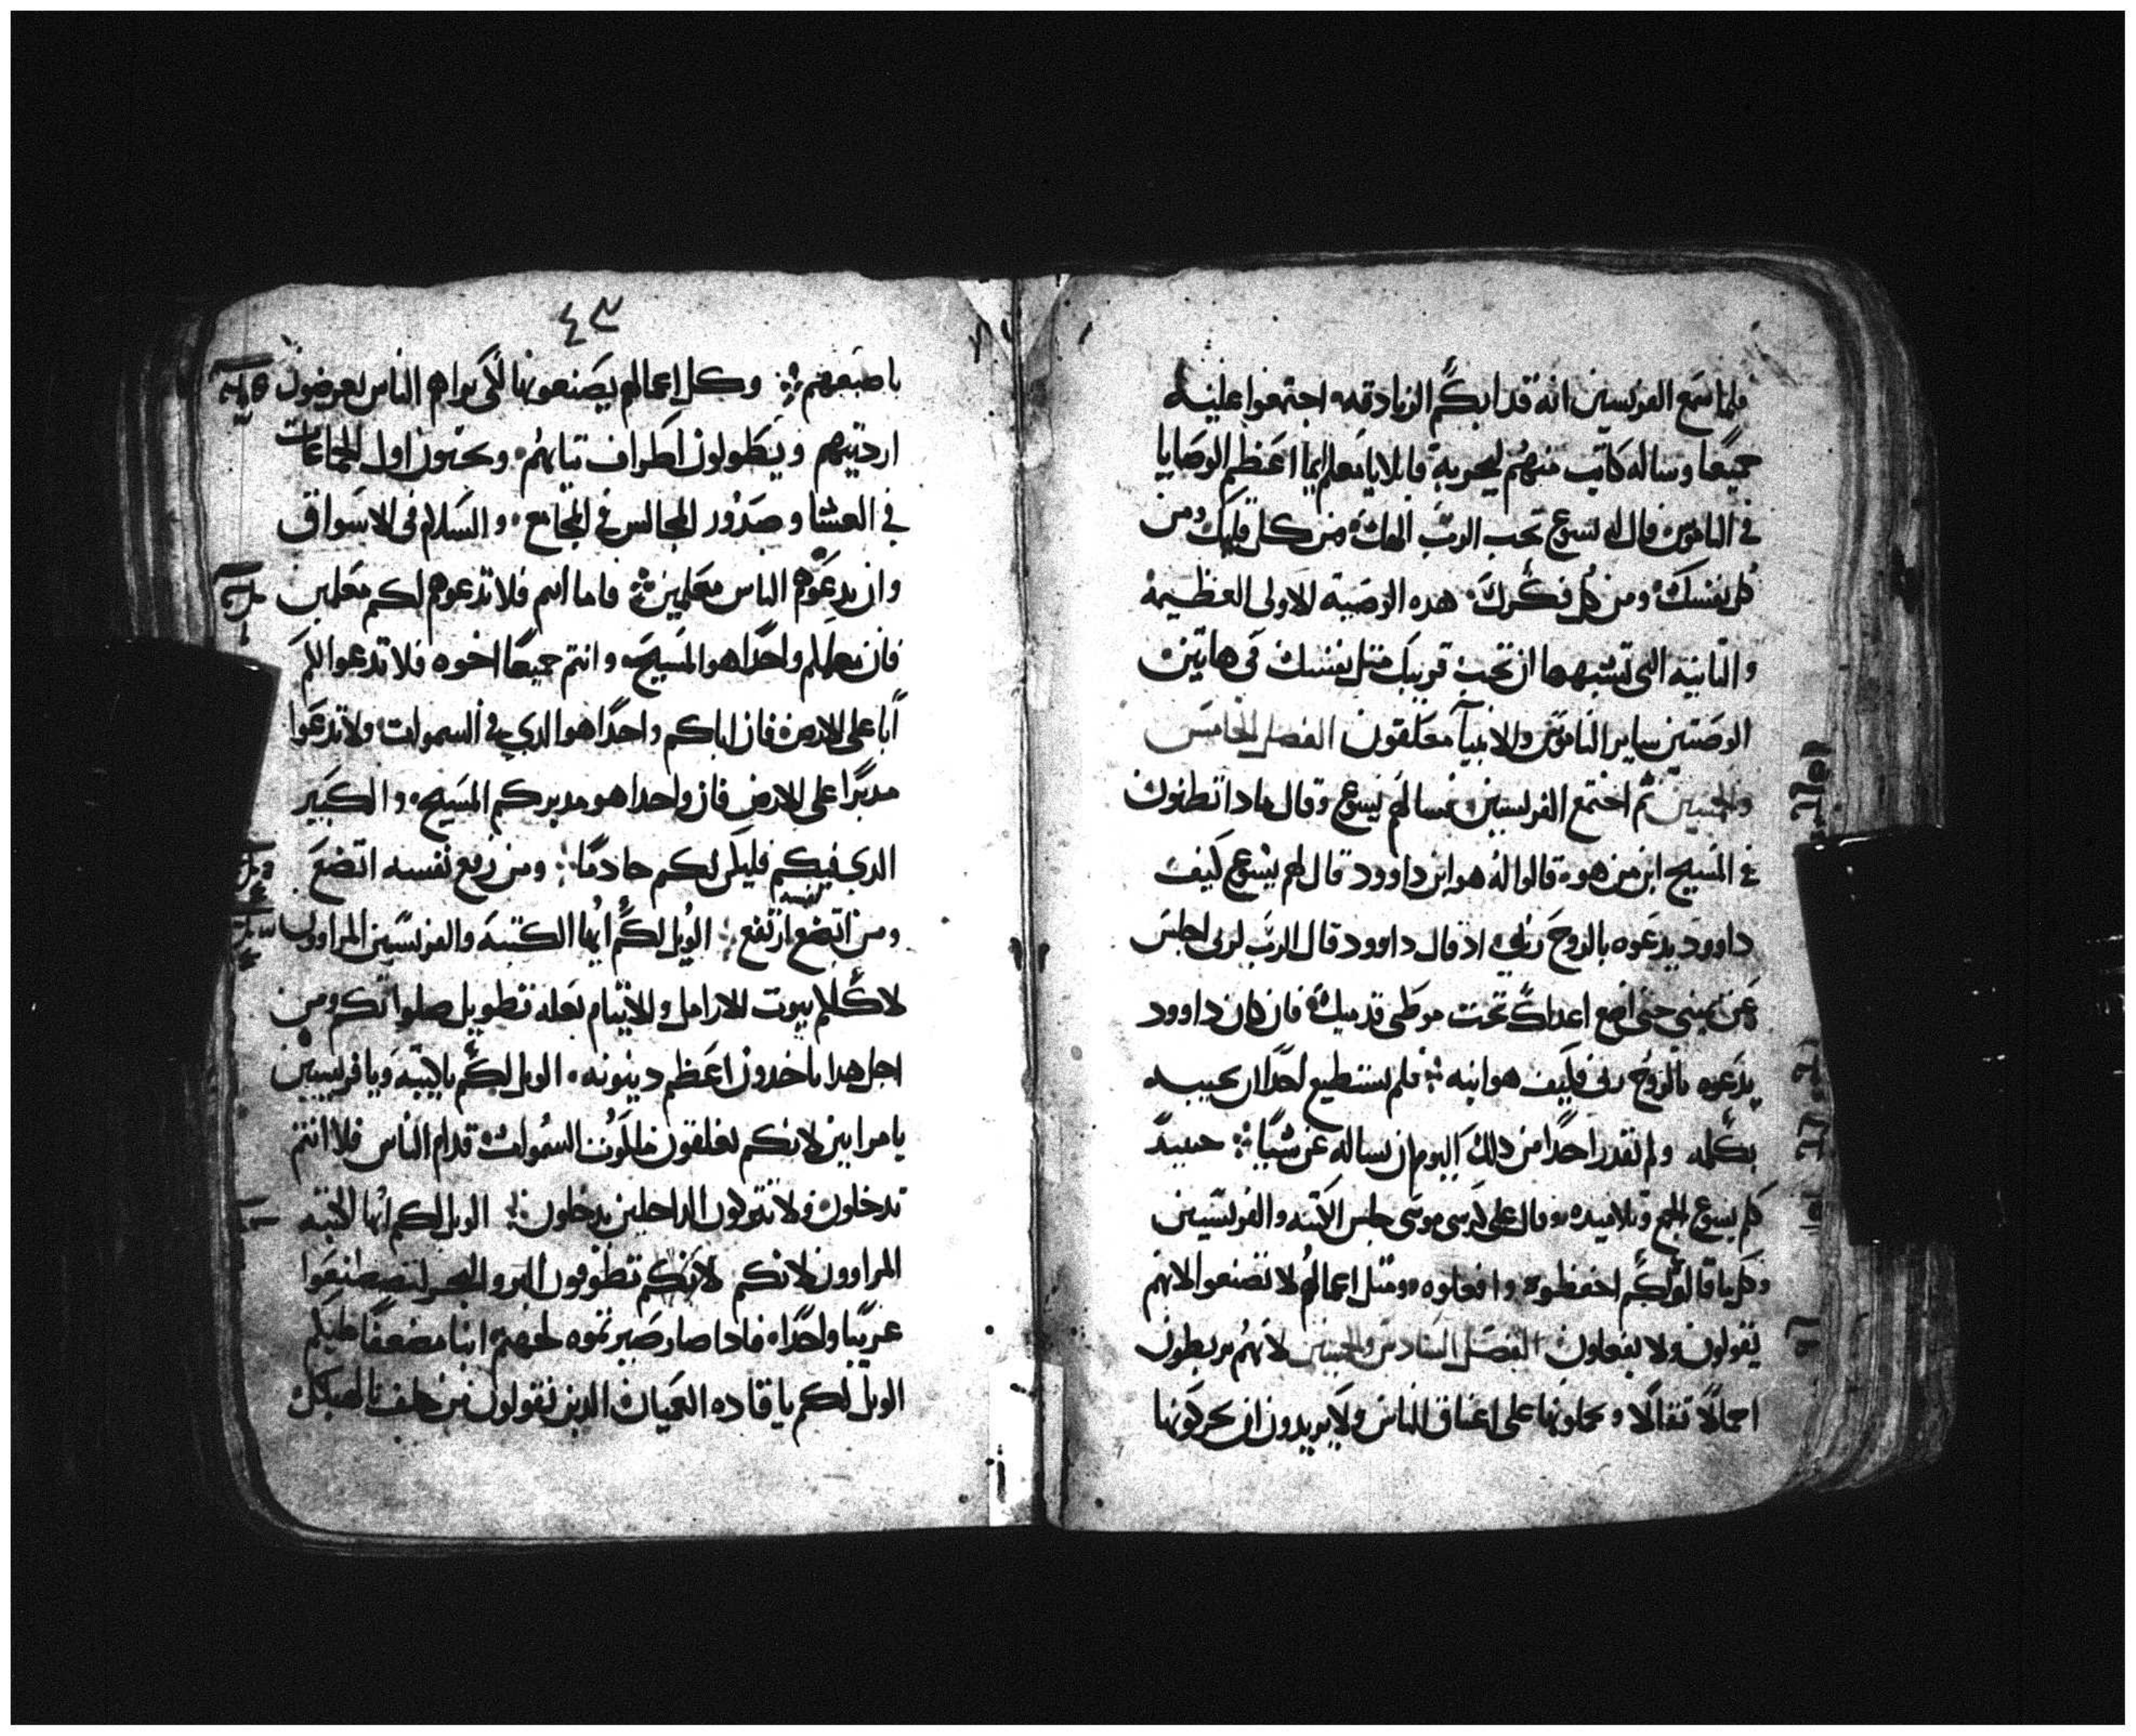 فلما سمع الفرنسيين انه قد ابكم الزنادقه اجتمعوا عليه
جميعا وساله كاتب منهم ليجربه قايلا يا معلم ايما اعظم الوصايا
في الناموس قال له يسوع تحب الرب الهك من كل قلبك ومن
كل نفسك ومن كل فكرك هده الوصية الاولى العظيمة
والتانيه التي تشبهها ان تحب قريبك متل نفسك في هاتين
الوصتين ساير الناموس والانبيآ معلقون الفصل الخامس
والخمسين تم اجتمع الفريسيين فسالهم يسوع وقال مادا تظنون
في المسيح ابن من هو قالوا له هو ابن داوود قال لهم يسوع كيف
داوود يدعوه بالروح ربي اد قال داوود قال الرب لربي اجلس
عن يميني حتى اضع اعداك تحت موطى قدميك فان كان داوود
يدعوه بالروح ربي فكيف هو ابنه فلم يستطيع احدًا ان يجيبه
بكلمه ولم تقدر احدًا من دلك اليوم ان يساله عن شيًا حينيدً
كلم يسوع الجمع وتلاميده وقال على كرسي موسى جلس الكتبه والفريسيين
وكل ما قالوا لكم احفظوه وافعلوه ومتل اعمالهم لا تصنعوا لانهم
يقولون ولا يفعلون الفصل السادس والخمسين لانهم يربطون
احمالًا تقالًا ويحملونها على اعناق الناس ولا يريدون ان يحركونها
٤٩
باصبعهم وكل اعمالهم يصنعونها لكي يراهم الناس يعرضون
ارديتهم ويطولون اطراف تيابهم ويحبون اول الجماعات
في العشا وصدور المجالس في المجامع والسلام في الاسواق
وان يدعوهم الناس معلمين فاما انتم فلا تدعوهم لكم معلمين
فان معلمكم واحدًا هو المسيح وانتم جميعًا اخوه فلا تدعوا لكم
أبا على الارض فان اباكم واحدًا هو الدي في السموات ولا تدعوا
مدبرًا على الارض فان واحدا هو مدبركم المسيح والكبير
الدي فيكم فليكن لكم خادمًا ومن رفع نفسه اتضع
ومن اتضع نفسه ارتفع الويل لكم أيها الكتبه والفريسين المراوون
لاكلكم بيوت الارامل والايتام بعله تطويل صلواتكم ومن
اجل هدا ياخدون اعظم دينونه الويل لكم يا كتبه ويا فريسيين
يا مرايين لانكم تغلقون ملكوت السموات قدام الناس فلا انتم
تدخلون ولا تتركون الداخلين يدخلون الويل لكم أيها الكتبه
المراوون لانكم لانكم تطوفون البر والبحر لتصطنعوا
غريبًا واحدًا فادا صار صيرتموه لجهنم ابنا مضعفًا عليكم
الويل لكم يا قاده العميان الدين تقولون من حلف بالهيكل